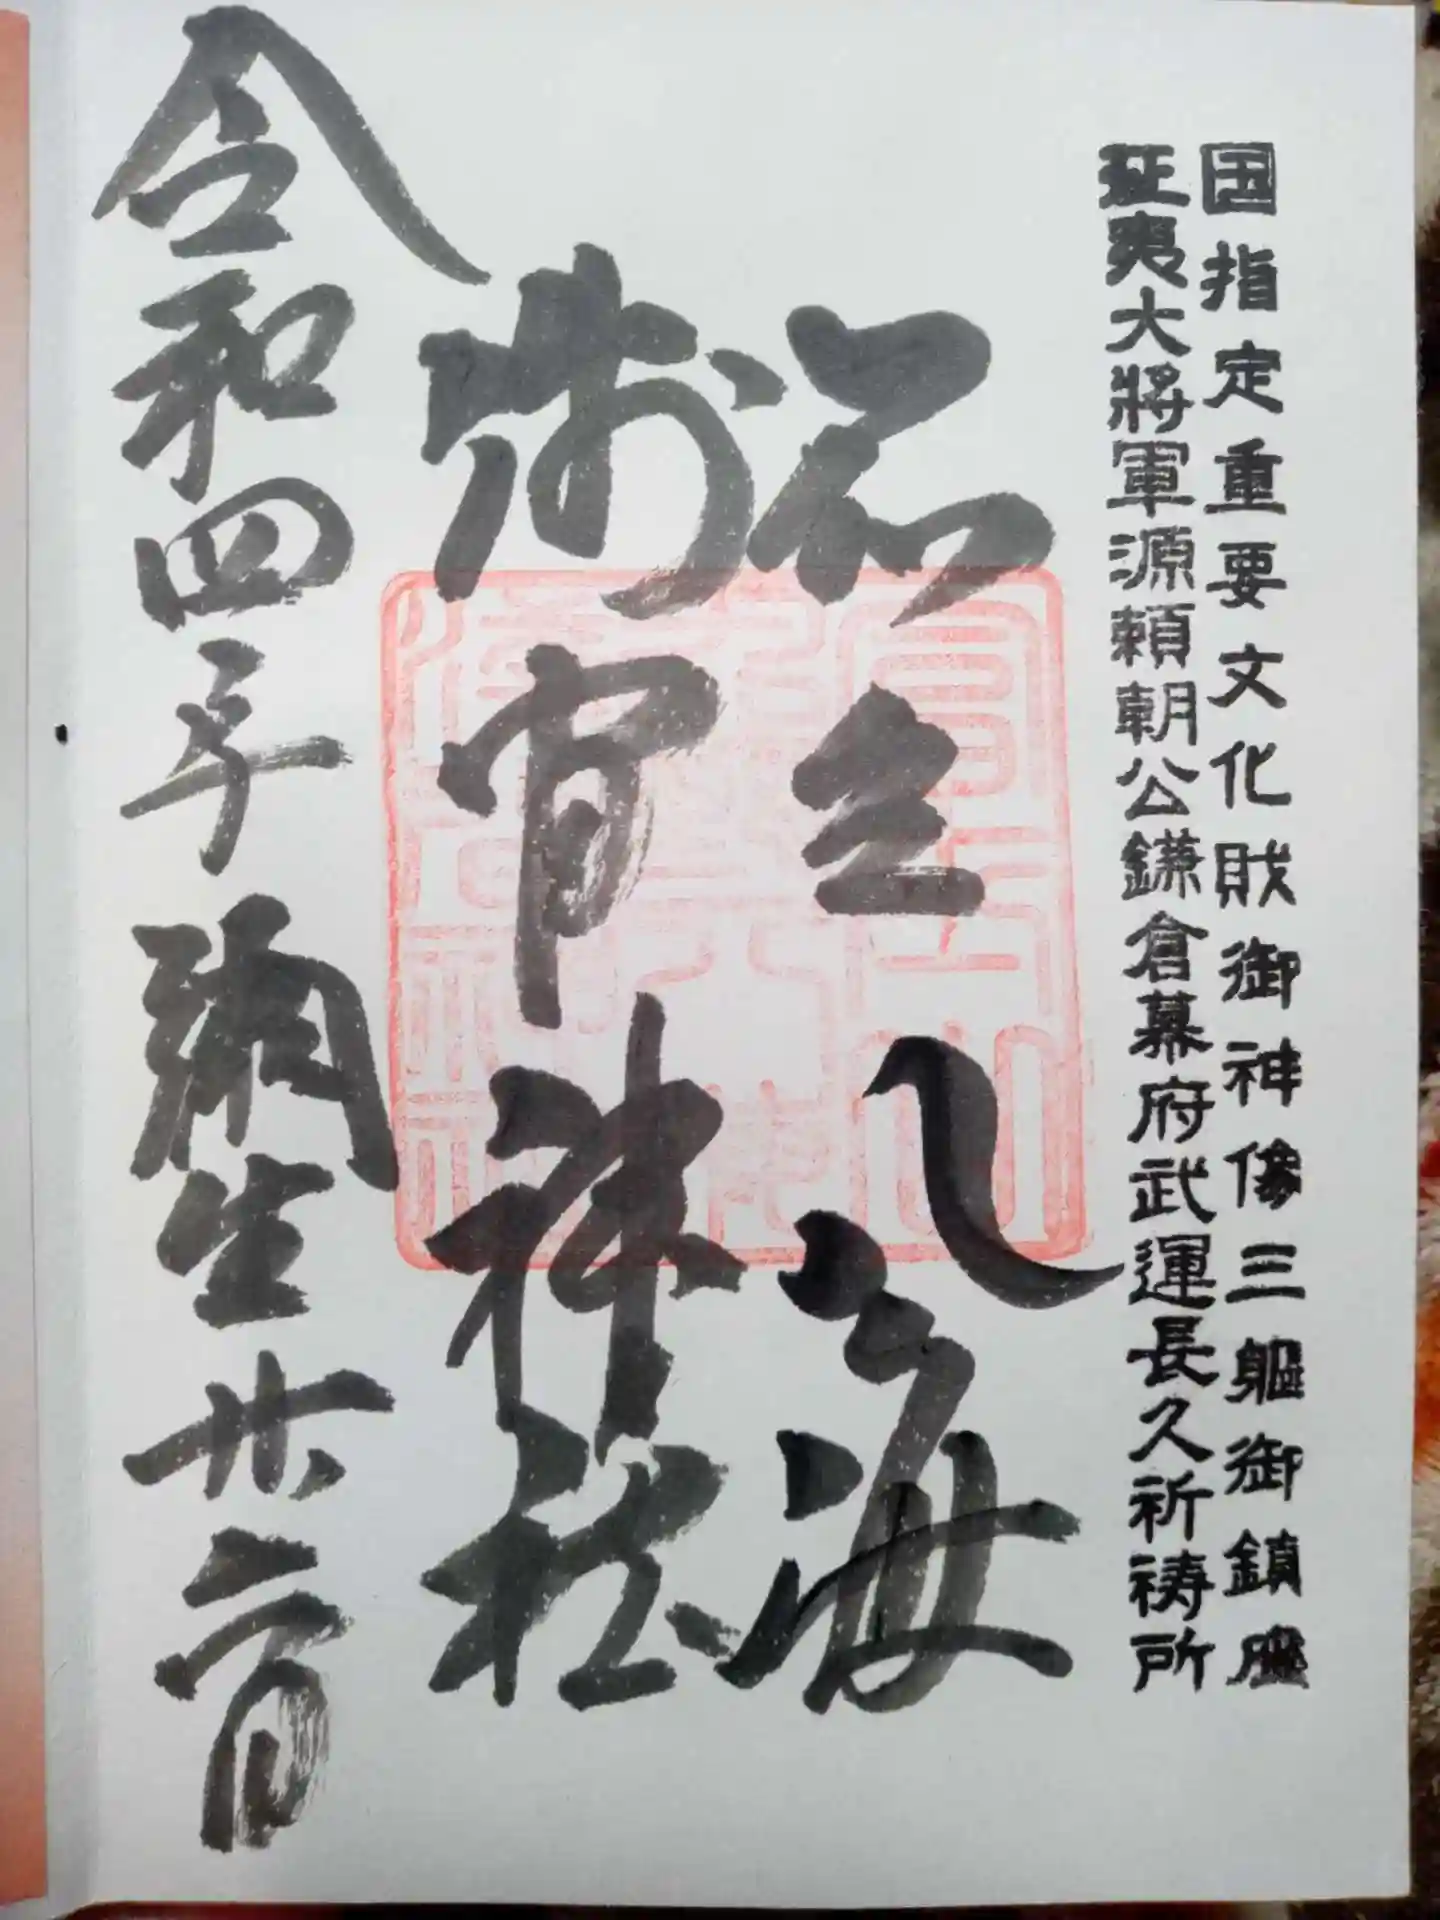 国指定重要文化財御神像三軀御鎮座
征夷大將軍源頼朝公鎌倉幕府武運長久祈祷所
八海
浅間神社
令和四年彌生廿六日